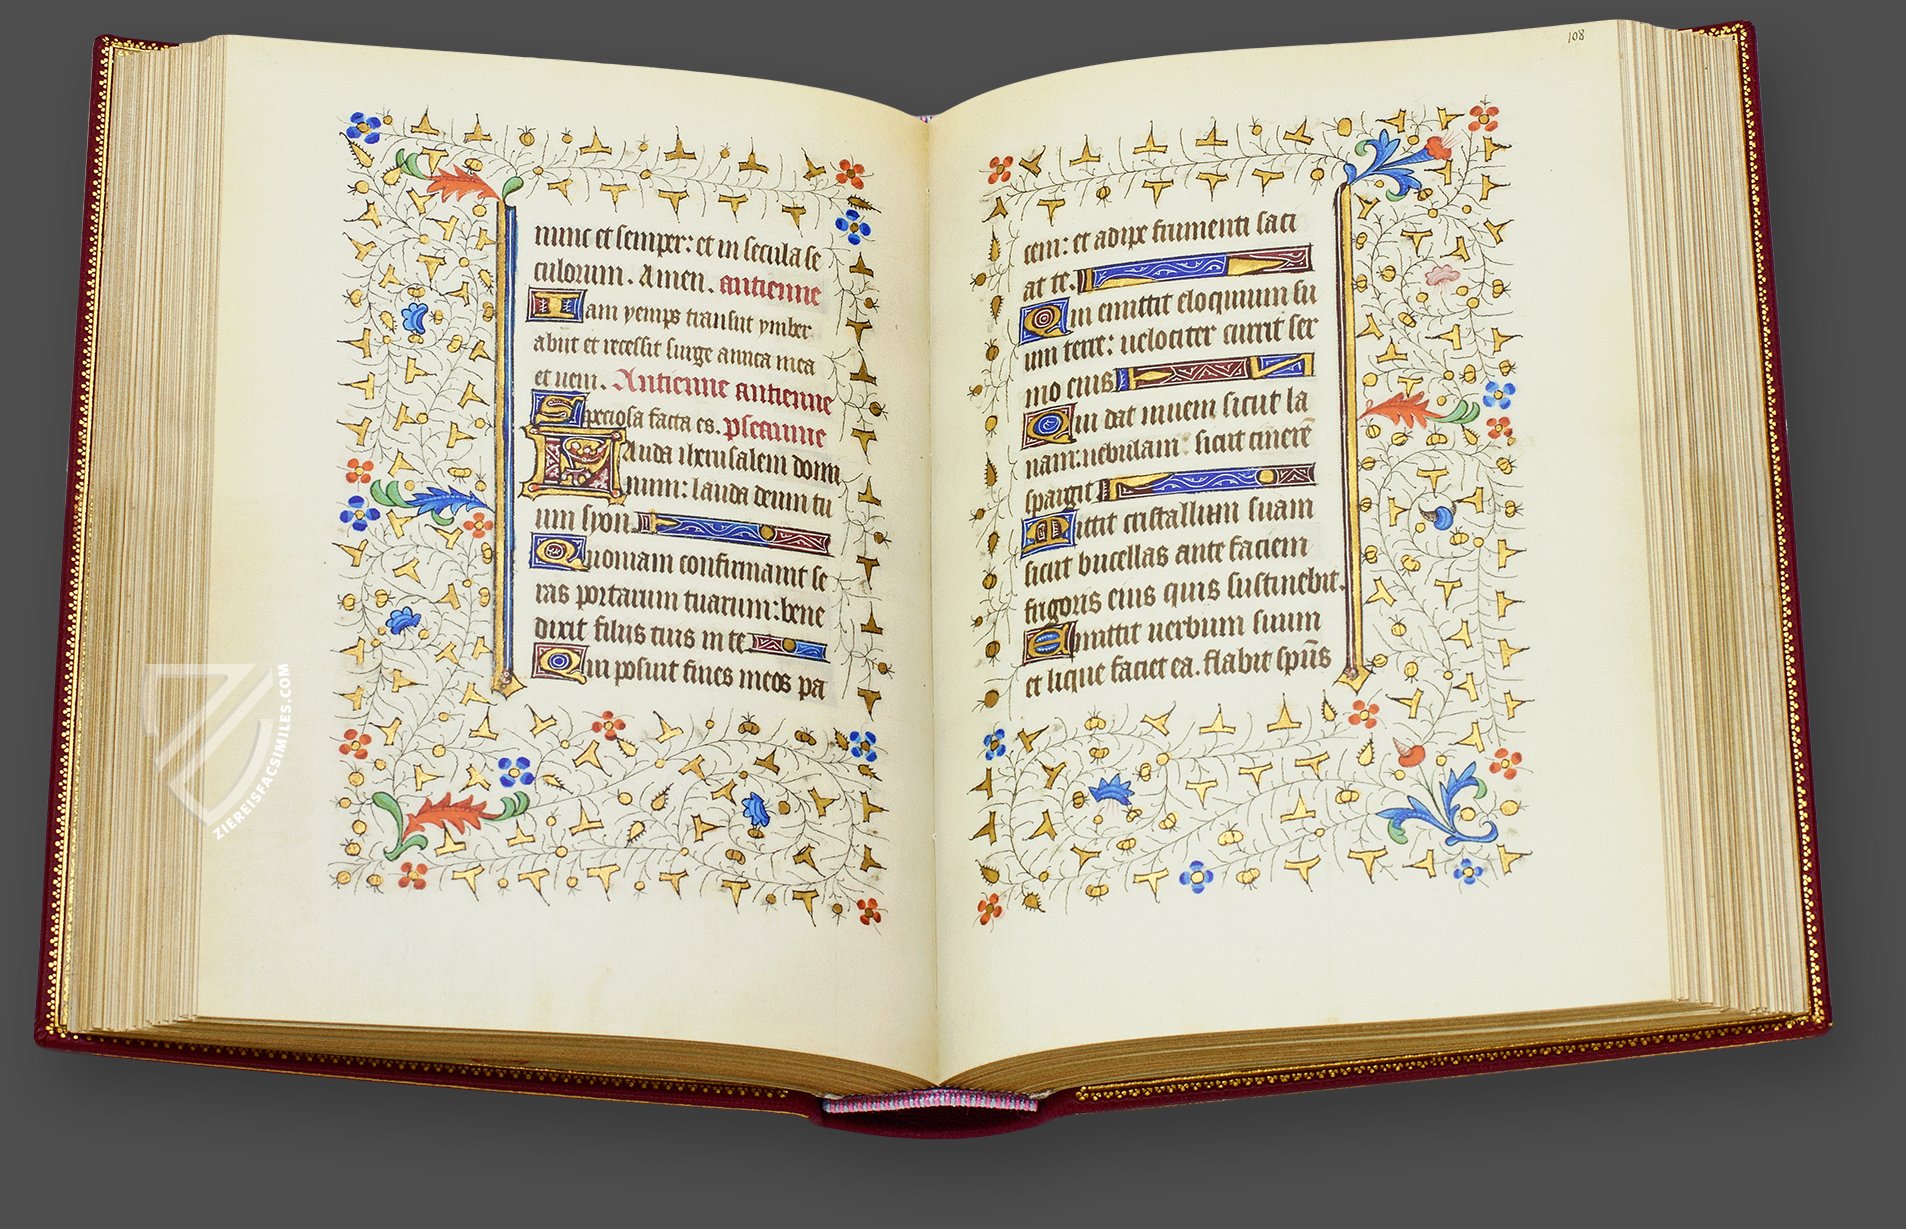 nunc et semper: et in secula se
culorum. Amen. antienne
Iam yemps transiit ymber
abiit et recessit surge amica mea
et ueni. Antienne antienne
Speciosa facta es. pseaume
Lauda iherusalem domi
num: lauda deum tu
um syon.
Quoniam confirmauit se
ras portarum tuarum: bene
dixit filiis tuis in te
Qui posuit fines meos pa
108
cem: et adipe frumenti saci
at te.
Qui emittit eloquium su
um terre: uelociter currit ser
mo eius
Qui dat niuem sicut la
nam: nebulam sicut cinerē
spargit
Mittit cristallum suam
sicut bucellas ante faciem
frigoris eius quis sustinebit.
Emittit uerbum suum
et lique faciet ea. flabit spūs
ZIEREISFACSIMILES.COM